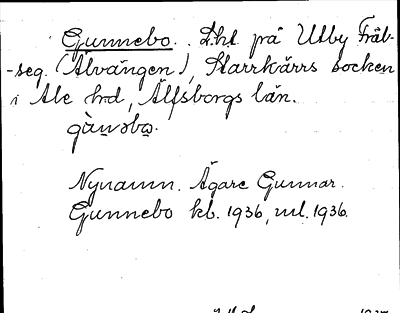 Gunnebo. Lht på Utby Fräb-
-seg. (Älvängen), Starrkärrs socken
i Ale hrd, Älfsborgs län.
gù̱nəbω.
Nynamn. Ägare Gunnar.
Gunnebo kb. 1936, ml. 1936.